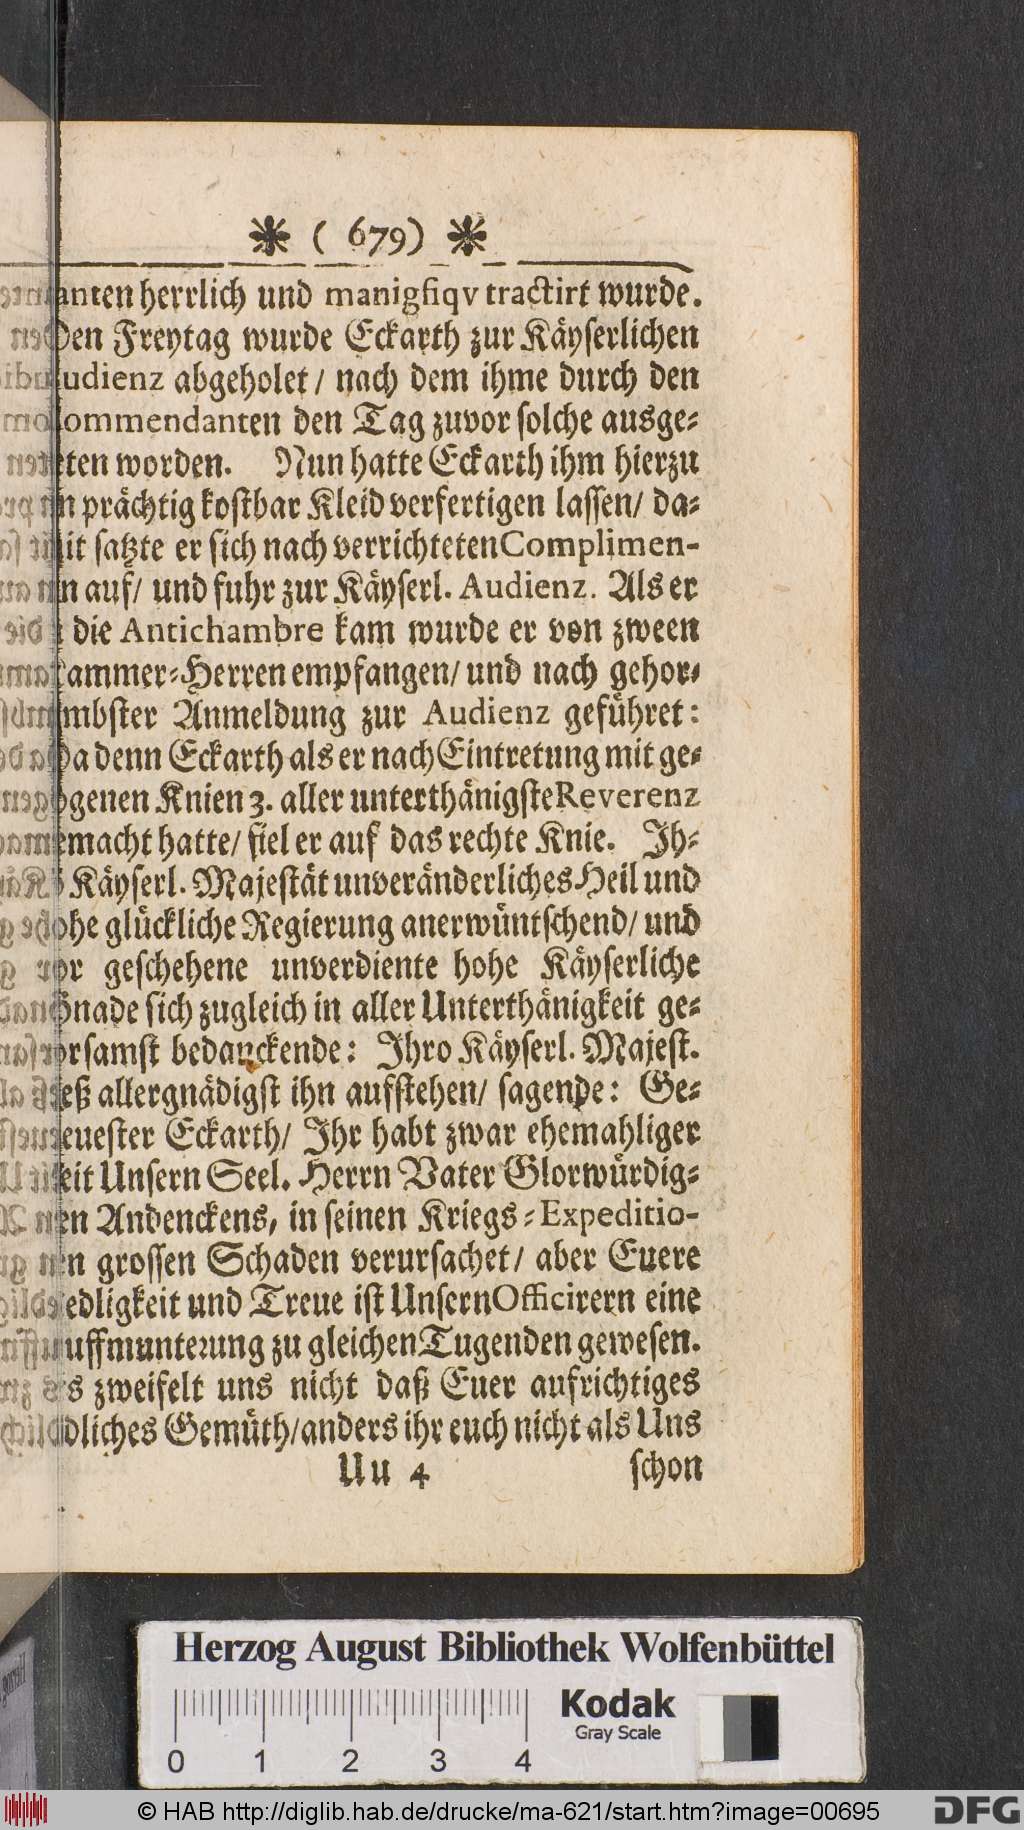 ❋ ( 679) ❋
anten herrlich und manigfiqv tractirt wurde.
Den Freytag wurde Eckarth zur Käyserlichen
udienz abgeholet / nach dem ihme durch den
ommendanten den Tag zuvor solche ausge-
eten worden. Nun hatte Eckarth ihm hierzu
n prächtig kostbar Kleid verfertigen lassen / da-
it satzte er sich nach verrichteten Complimen-
n auf / und fuhr zur Käyserl. Audienz. Als er
die Antichambre kam wurde er von zween
ammer-Herren empfangen / und nach gehor-
mbster Anmeldung zur Audienz geführet:
Da denn Eckarth als er nach Eintretung mit ge-
ogenen Knien 3. aller unterthänigste Reverenz
emacht hatte / fiel er auf das rechte Knie. Ih-
Käyserl. Majestät unveränderliches Heil und
ohe glückliche Regierung anerwüntschend / und
or geschehene unverdiente hohe Käyserliche
Gnade sich zugleich in aller Unterthänigkeit ge-
orsamst bedanckende: Ihro Käyserl. Majest.
eß allergnädigst ihn aufstehen / sagende: Ge-
euester Eckarth / Ihr habt zwar ehemahliger
eit Unsern Seel. Herrn Vater Glorwürdig-
en Andenckens, in seinen Kriegs-Expeditio-
n grossen Schaden verursachet / aber Euere
edligkeit und Treue ist Unsern Officirern eine
uffmunterung zu gleichen Tugenden gewesen.
s zweifelt uns nicht daß Euer aufrichtiges
dliches Gemüth / anders ihr euch nicht als Uns
Uu 4 schon
Herzog August Bibliothek Wolfenbüttel
Kodak
Gray Scale
0 1 2 3 4
© HAB http://diglib.hab.de/drucke/ma-621/start.htm?image=00695
DFG